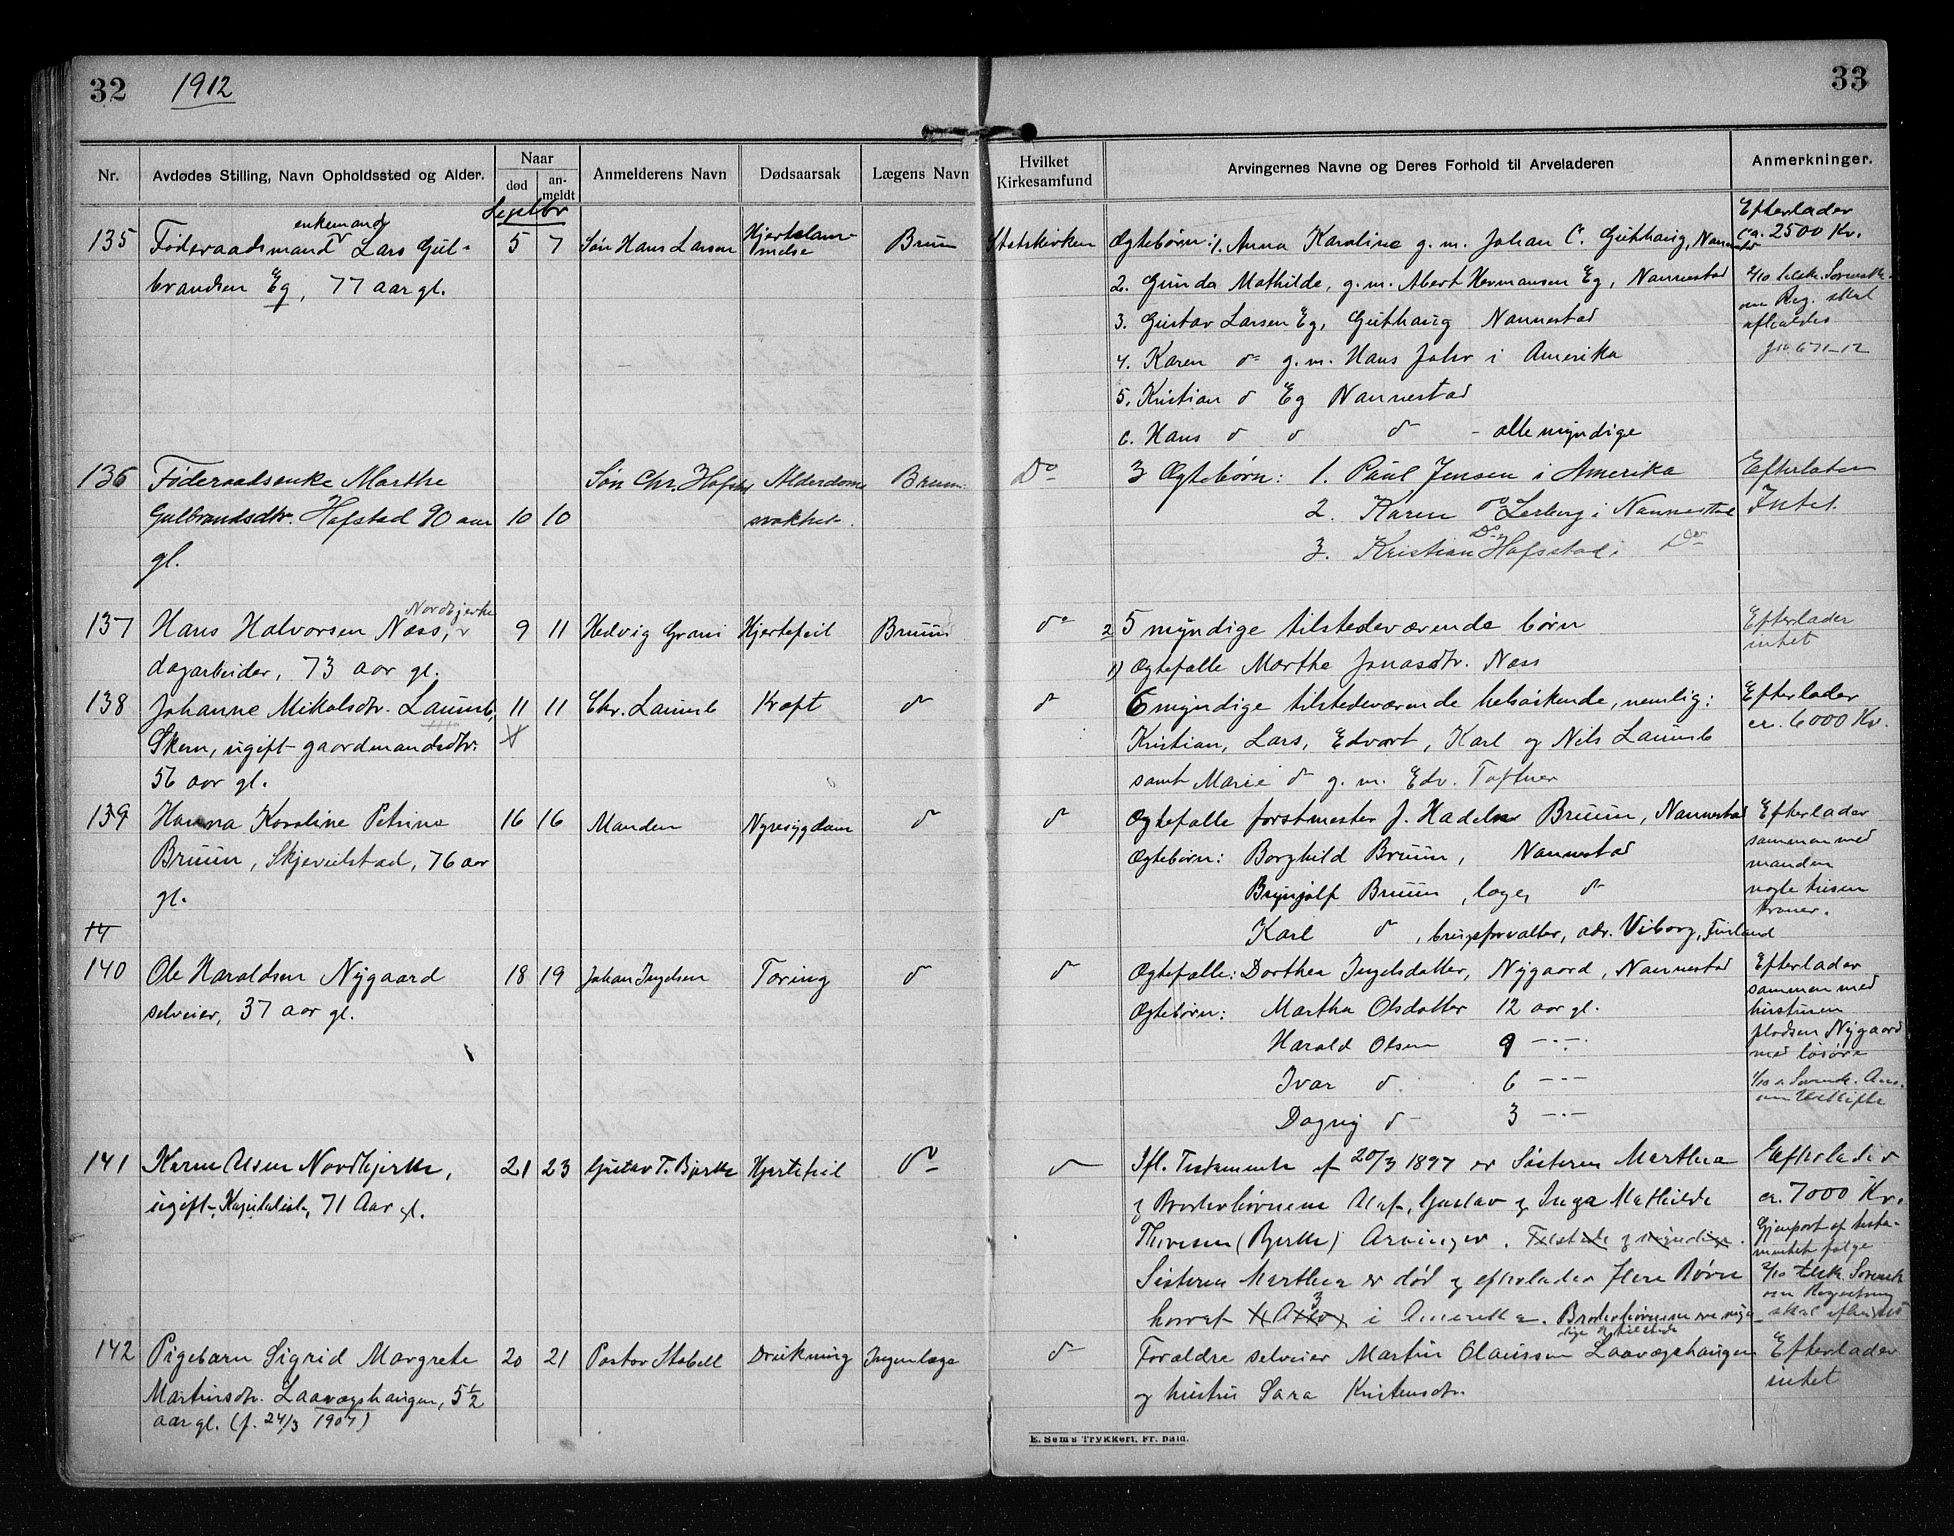 32 1912
33
Nr. Avdødes Stilling, Navn Opholdssted og Alder. Naar død an-meldt Anmelderens Navn Dødsaarsak Lægens Navn Hvilket Kirkesamfund Arvingernes Navne og Deres Forhold til Arveladeren Anmerkninger.
Septbr
enkemand
135 Føderaadsmand Lars Gul- 5 7 Søn Hans Larsen Hjertelam- Bruun Statskirken Ægtebørn: 1. Anna Karoline g. m. Johan C. Guthaug, Nannestad Efterlader ca. 2500 Kr.
brandsen Eg, 77 aar gl. melse 2. Gunda Mathilde, g. m. Abert Hermansen Eg, Nannestad
3. Gustav Larsen Eg, Guthaug Nannestad
4. Karen do g. m. Hans Johr i Amerika
5. Kristian do Eg Nannestad
6. Hans do do do - alle myndige
2/10 telef. Sorensk. om Reg. skal afholdes
Jno 671-12
136 Føderaadsenke Marthe Søn Chr. Hofstad Alderdoms Bruun Do 3 Ægtebørn: 1. Paul Jensen i Amerika Efterlader
Gulbrandsdtr. Hofstad 90 aar 10 10 svakhet. 2. Karen do Lerberg i Nannestad Intet.
gl. 3. Kristian Do Hofstad i Do
137 Hans Halvorsen Næss, Nordbjerke 9 11 Hedvig Grani Hjertefeil Bruun do 2 5 myndige tilstedeværende børn Efterlader
dagarbeider, 73 aar gl. 1) Ægtefælle Marthe Jonasdtr. Næss intet
138 Johanne Mikalsdtr. Launsb, 11 11 Chr. Launsb Kræft do do 6 myndige tilstedeværende helsøskende, nemlig: Efterlader
Skem, ugift gaardmandsdtr. Kristian, Lars, Edvart, Karl og Nils Launsb ca. 6000 Kr.
56 aar gl. samt Marie do g. m. Edv. Toftner
139 Hanna Karoline Petrine 16 16 Manden Nyresygdom do do Ægtefælle forstmester J. Hadeln Bruun, Nannestad Efterlader
Bruun, Skjevelstad, 76 aar Ægtebørn: Borghild Bruun, Nannestad sammen med manden
gl. Brynjolf Bruun, læge, do nogle tusen
14 Karl do, brugsforvalter, adr. Viborg, Finland kroner.
140 Ole Haraldsen Nygaard 18 19 Johan Ingelsen Tæring do do Ægtefælle: Dorthea Ingelsdatter, Nygaard, Nannestad Efterlader
selveier, 37 aar gl. Ægtebørn: Martha Olsdatter 12 aar gl. sammen med hustruen
Harald Olsen 9 -"- pladsen Nygaard med løsøre
Ivar do 6 -"-
Dagny do 3 -"-
141 Karen Olsen Nordbjerke, 21 23 Gustav T. Bjerke Hjertefeil do do Ifl. Testamente af 20/3 1897 er Søsteren Marthea Efterlader
ugift, Kapitalist, 71 Aar gl. og Broderbørnene Olaf, Gustav og Inga Mathilde ca. 7000 Kr.
Thoresen (Bjerke) Arvinger. Tilstede og myndige. Gjenpart af testamentet følge
Søsteren Marthea er død og efterlader flere Børn 2/10 telef. Sorensk. om Registrering
hvoraf 3 i Amerika. Broderbørnene ere myndige og tilstede skal afholdes
142 Pigebarn Sigrid Margrete 20 21 Pastor Stabell Drukning Ingen læge do Forældre selveier Martin Olaussen Laavægshaugen Efterlader
Martinsdtr. Laavægshaugen, 5½ og hustru Sara Kristensdtr. intet
aar gl. (f. 24/3 1907)
E. Sem's Trykkeri, Fr.hald.